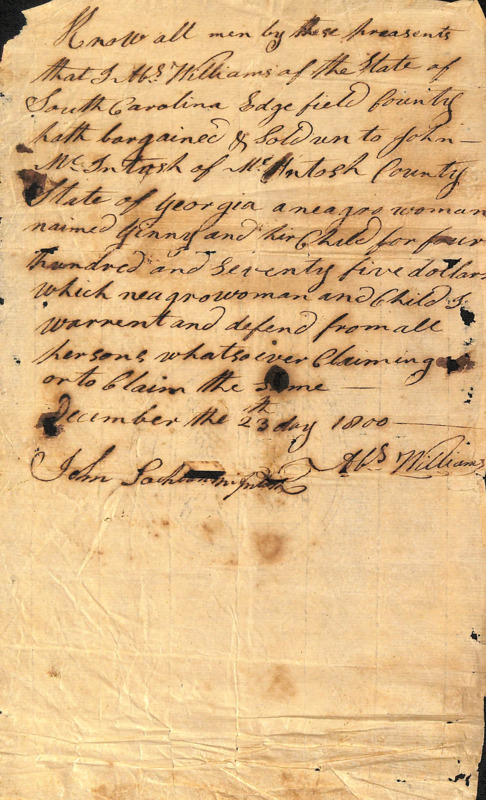 Know all men by these preasents
that I Abs Williams of the State of
South Carolina Edgefield County
hath bargained & Sold un to John
Mc Intash of Mc Intosh County
State of Georgia a neagro woman
naimed Ginny and hir Child for four
hundred and Seventy five dollars
which neagro woman and Child I
warrent and defend from all
persons whatsoiver Claiming
or to Claim the Same
December the 23th day 1800
Abs Williams
John